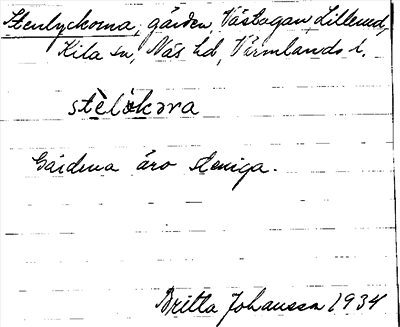 Stenlyckorna, gården, Västogan Lillerud,
Kila sn, Näs hd, Värmlands l.
stèlo̊kəra
Gårdarna äro steniga.
Britta Johansson 1934